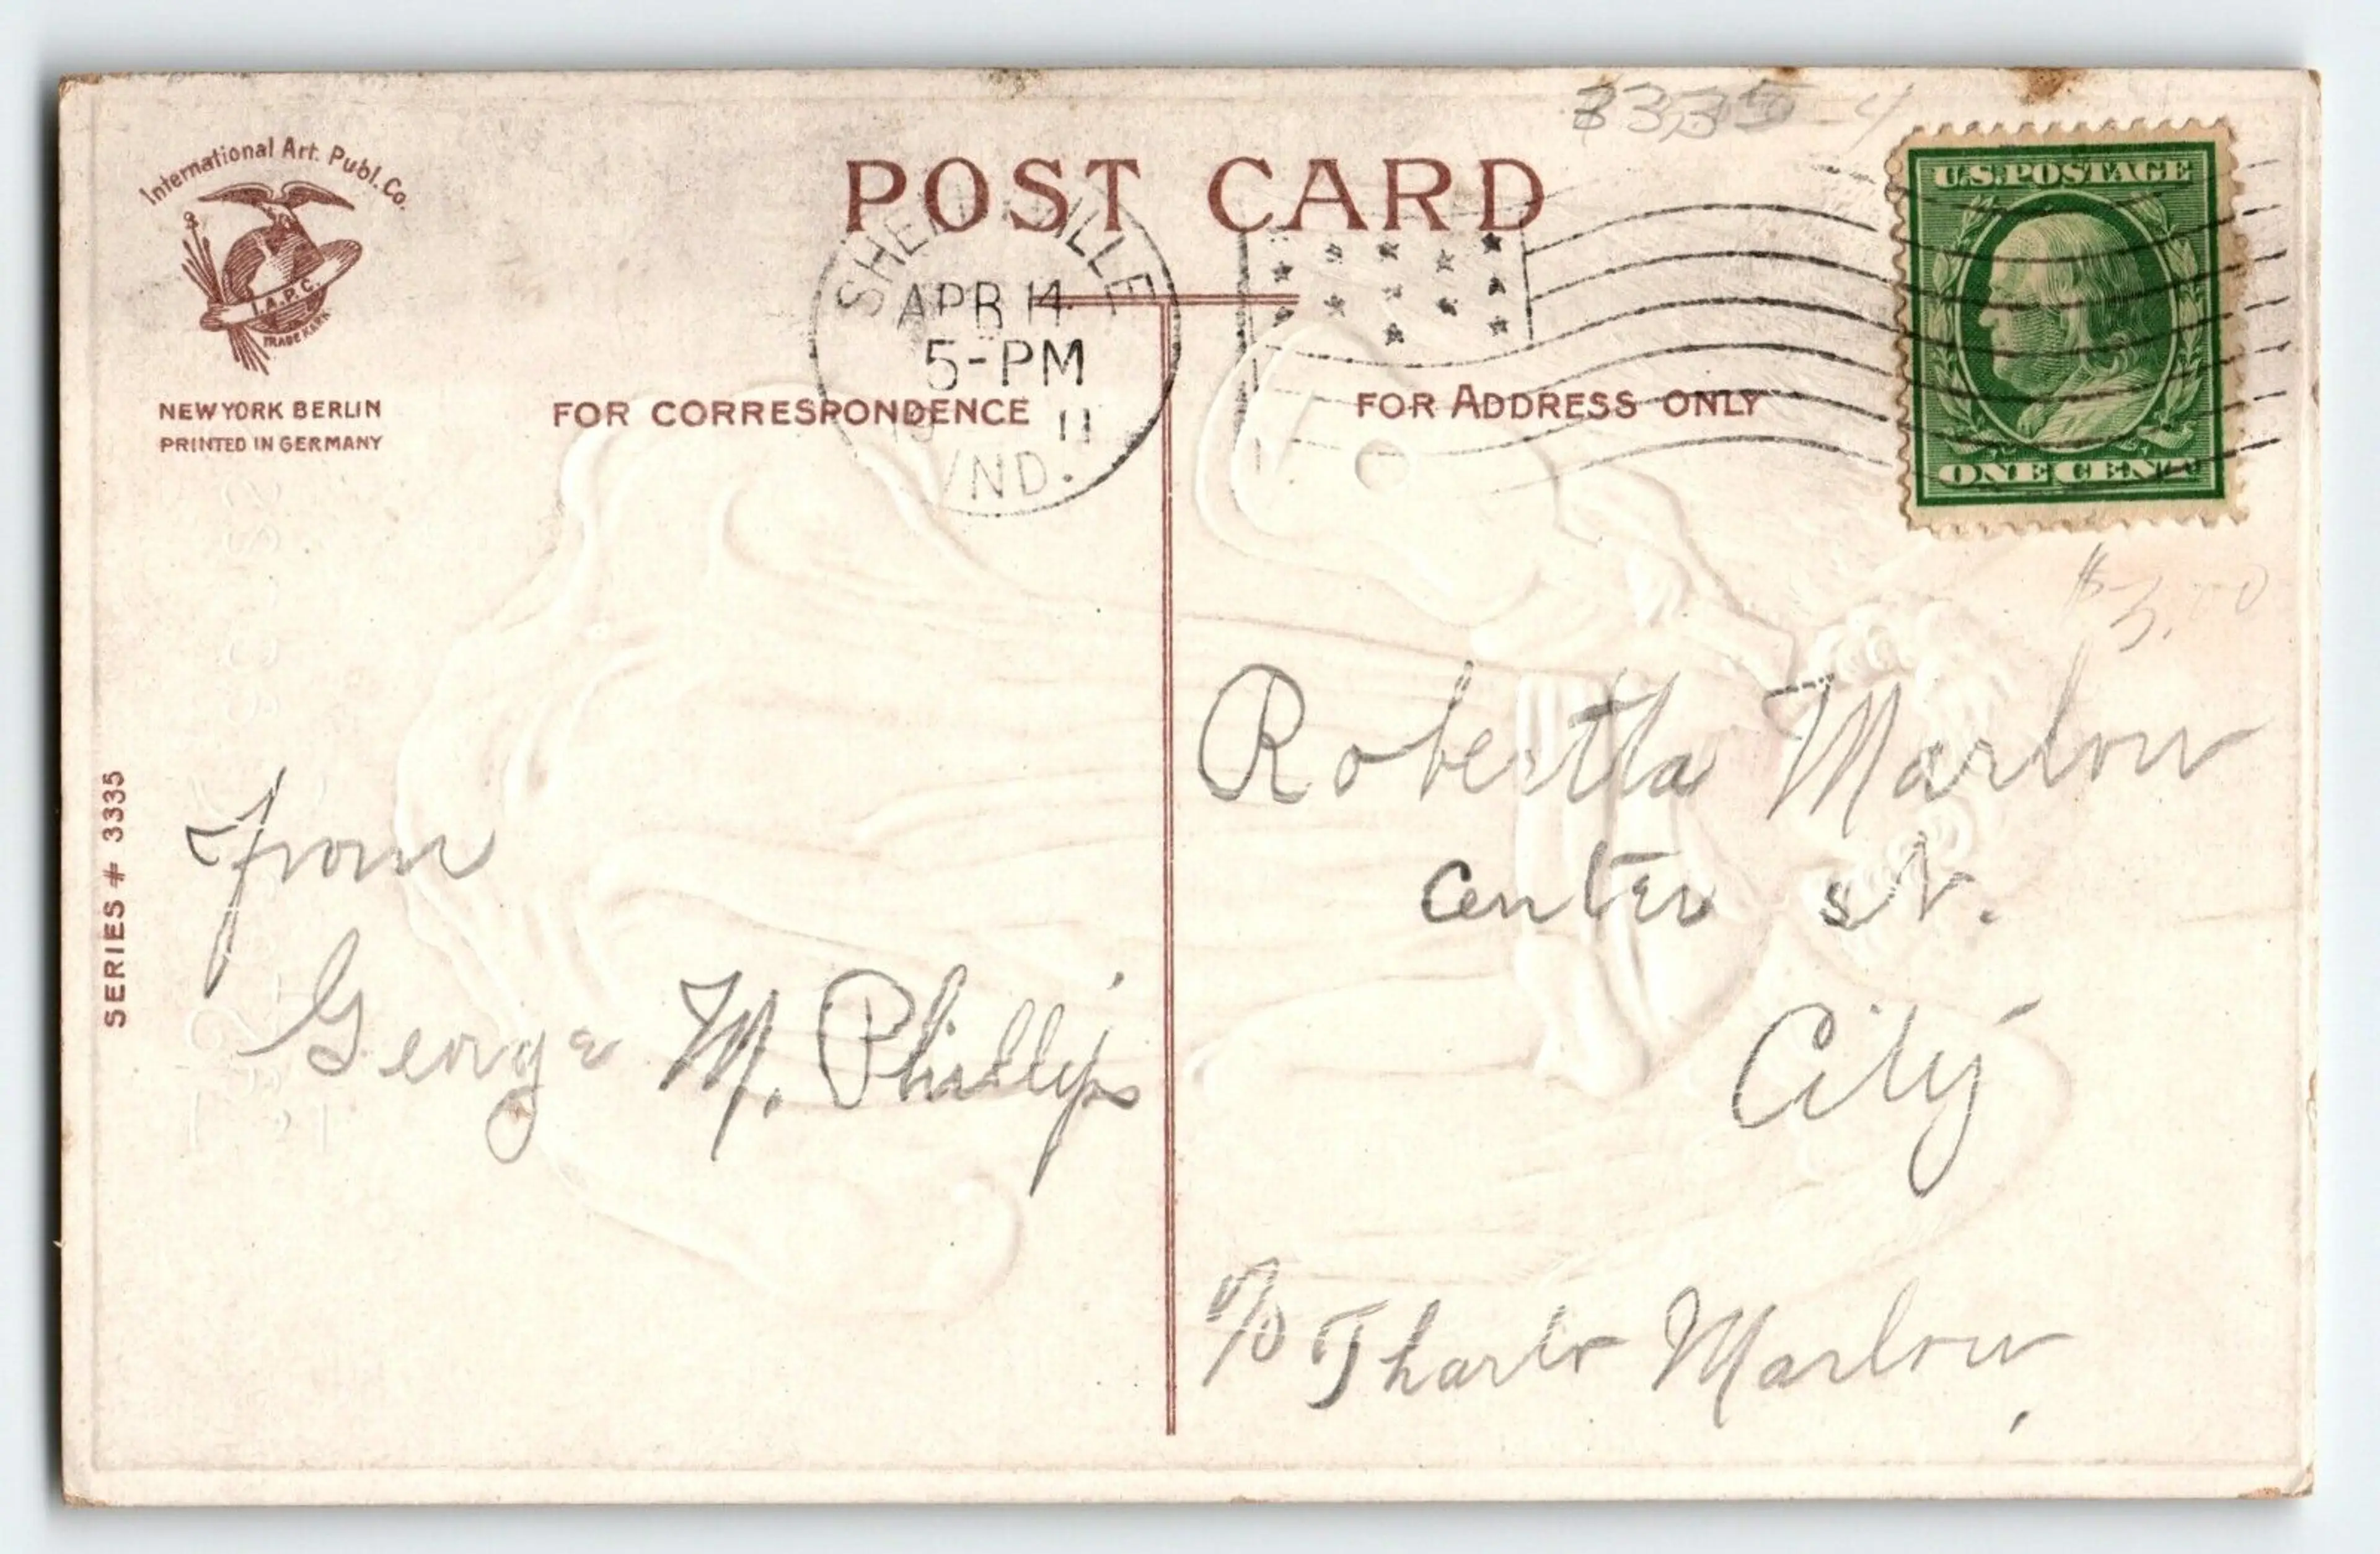 3335-4
International Art. Publ. Co.
I.A.P.C.
TRADE MARK
NEW YORK BERLIN
PRINTED IN GERMANY
POST CARD
APR 14
5-PM
19 11
IND.
U.S. POSTAGE
ONE CENT
FOR CORRESPONDENCE
FOR ADDRESS ONLY
$3.00
SERIES # 3335
from
George M. Phillips
Robertta Marlow
Center st.
City
c/o Marlow